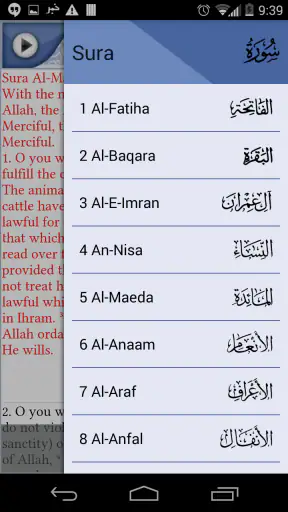 خبر
9:39
Sura سُورَة
1 Al-Fatiha الفَاتِحَة
2 Al-Baqara البَقَرَة
3 Al-E-Imran آل عِمْرَان
4 An-Nisa النِّسَاء
5 Al-Maeda المَائدَة
6 Al-Anaam الأنعَام
7 Al-Araf الأعرَاف
8 Al-Anfal الأنفَال
Sura Al-M
With the
Allah, the
Merciful, t
Merciful.
1. O you w
fulfill the
The anima
cattle have
lawful for
that which
read over
provided th
not treat h
lawful whi
in Ihram.
Allah orda
He wills.
2. O you w
do not viol
sanctity) o
of Allah,